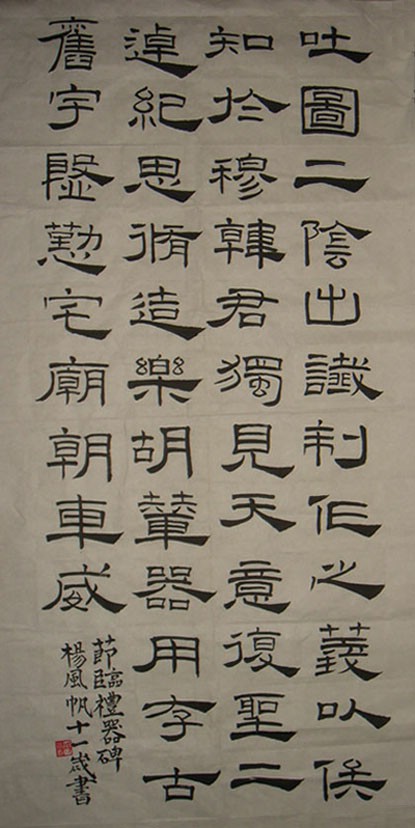 吐圖二陰出讖制作之義以俟
知於穆韓君獨見天意復聖二
逴紀思脩造樂胡輦器用存古
舊宇殷懃宅廟朝車威
節臨禮器碑
楊風帆十一歲書